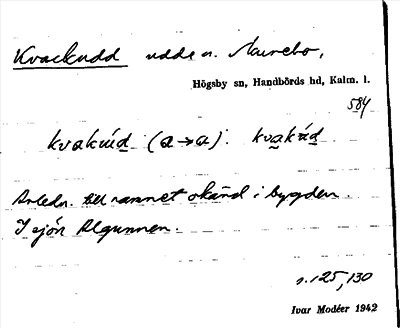 Kvackudd udde n. Aurebo,
Högsby sn, Handbörds hd, Kalm. l.
584
kvakúd (a→a). kvakúd
Anledn. till namnet okänd i bygden.
I sjön Algunnen.
s. 125, 130
Ivar Modéer 1942